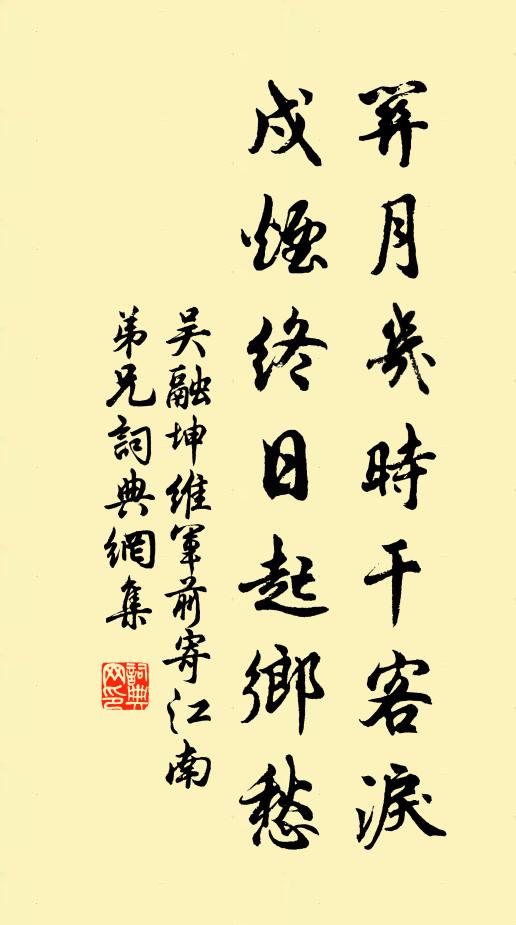 關月幾時干客淚
戍煙終日起鄉愁
吴融坤維軍前寄江南
弟兄詞典網集
詞典
网印